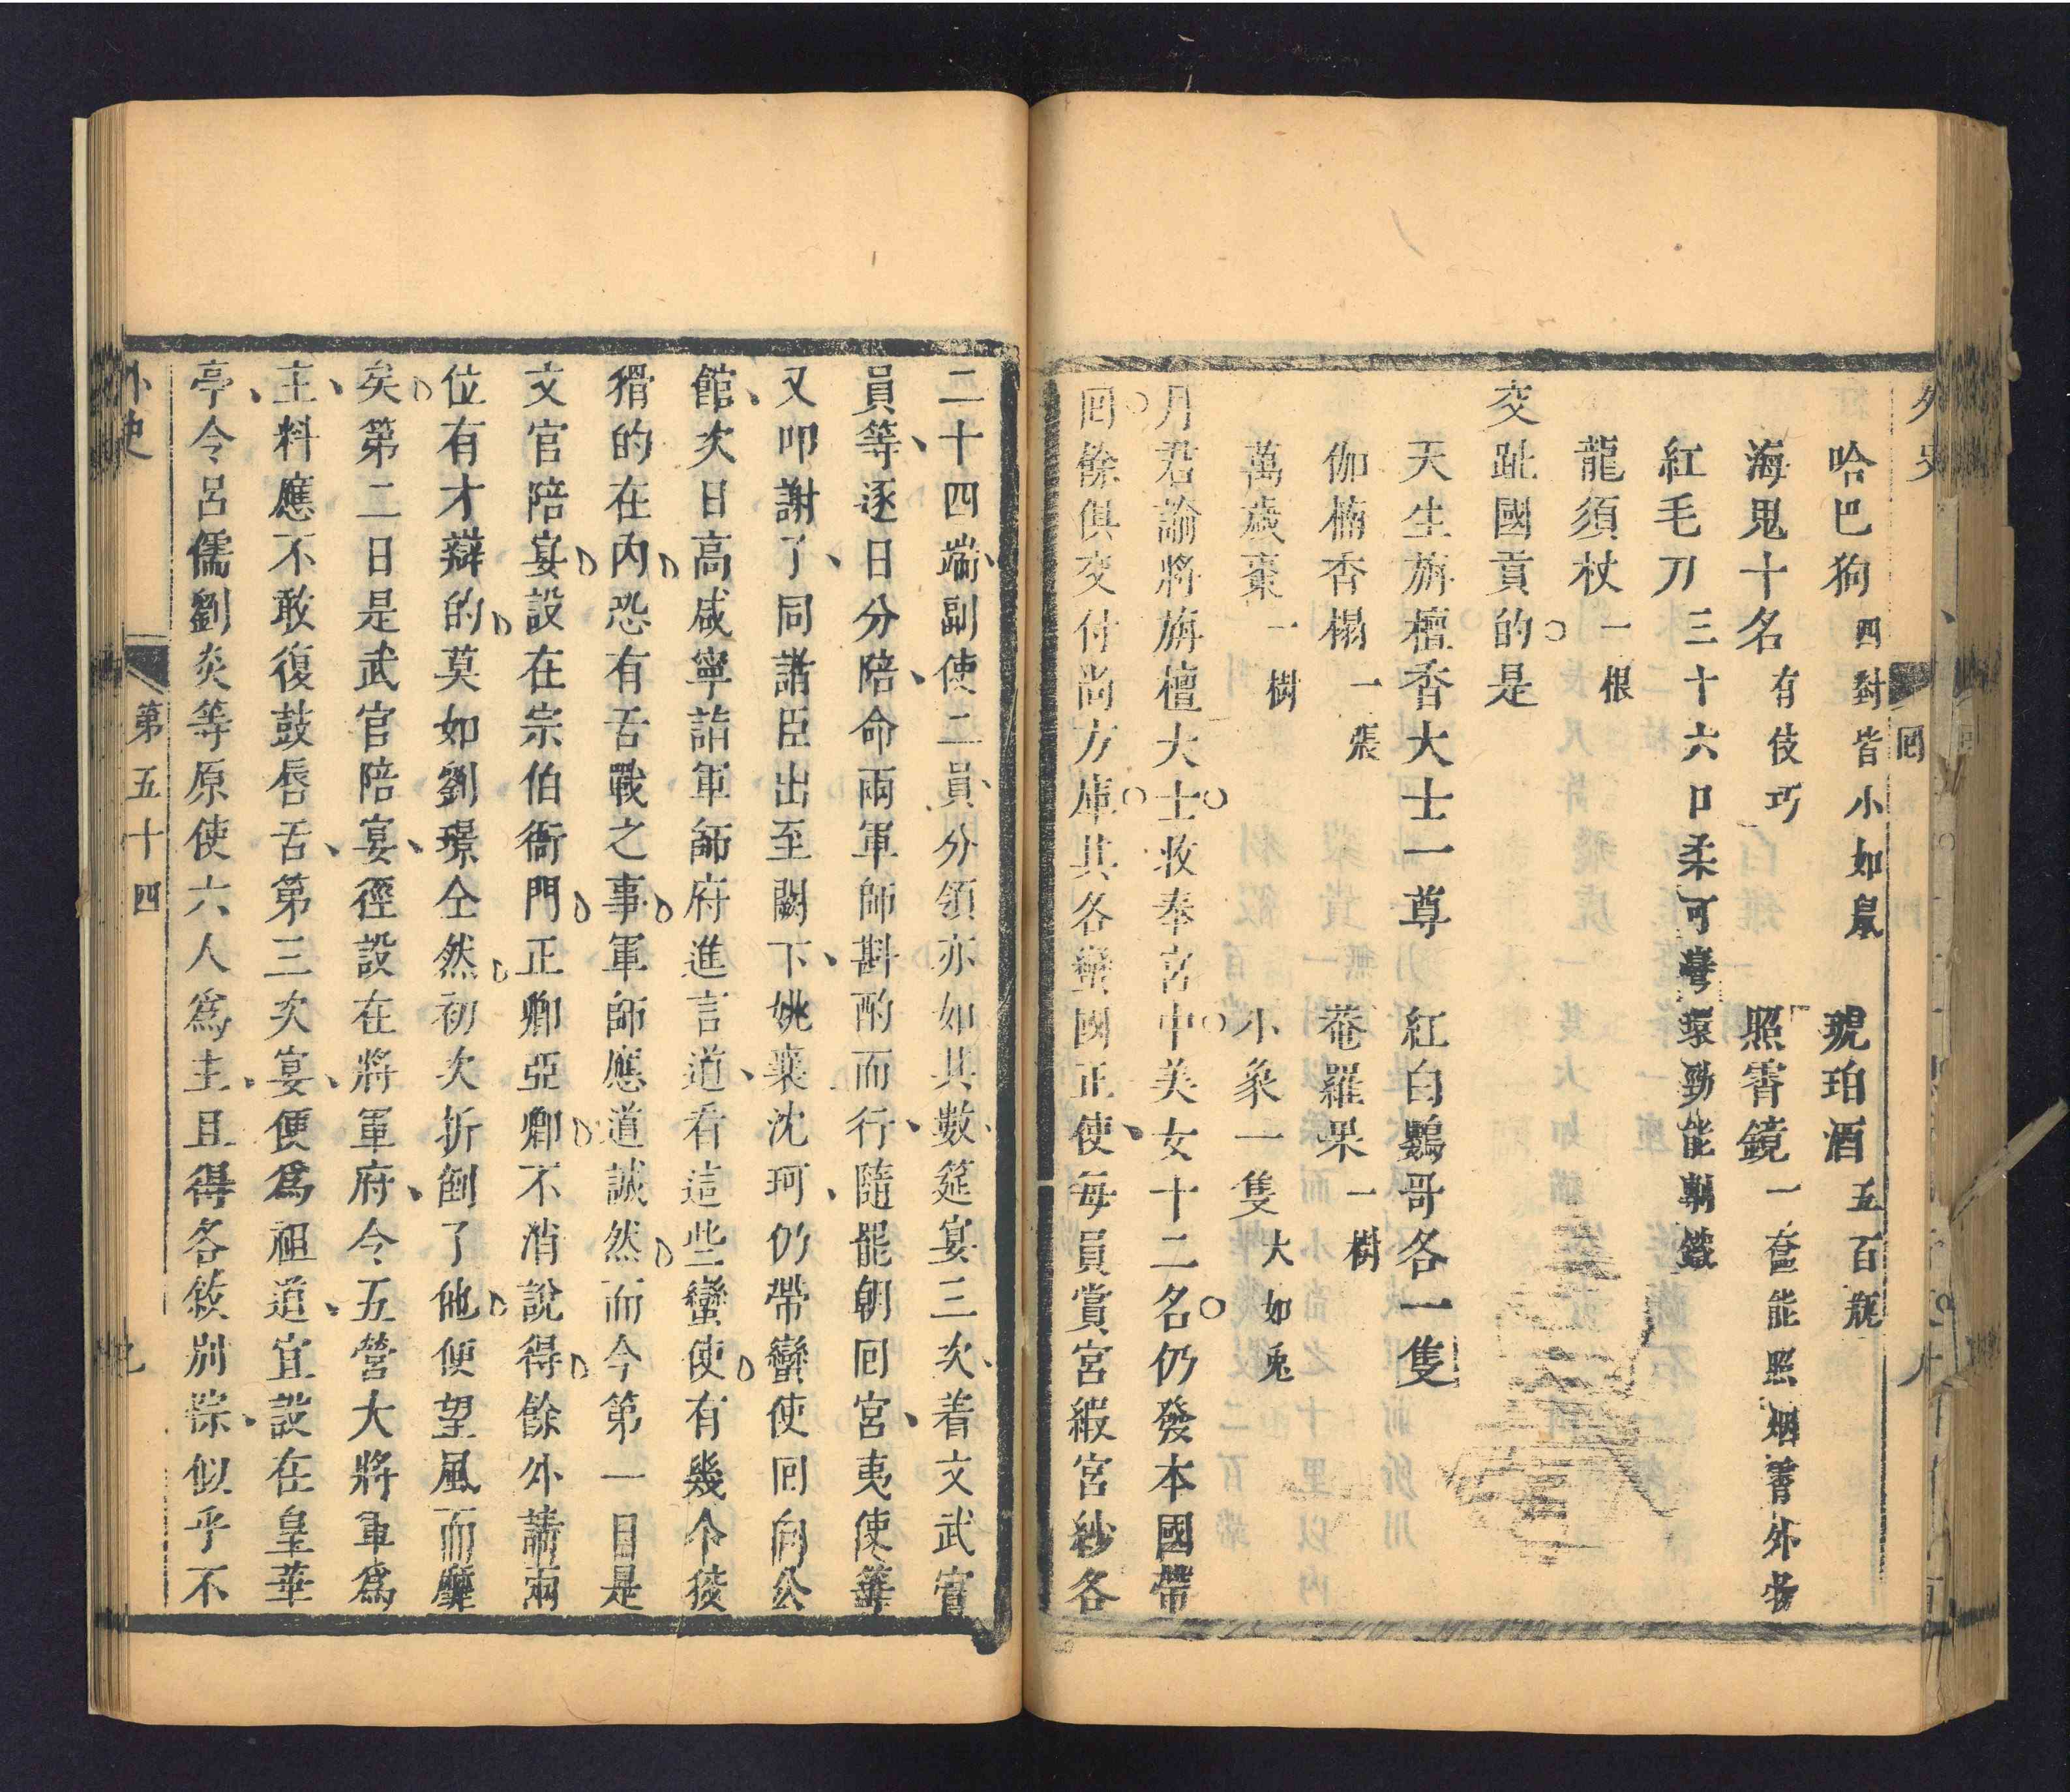 外史
回
哈巴狗四對皆小如鼠　琥珀酒五百瓶
海鬼十名有伎巧　照霄鏡一奩能照烟霄外物
紅毛刀三十六口柔可彎環勁能剸鐵
龍須杖一根
交趾國貢的是
天生旃檀香大士一尊　紅白鸚哥各一隻
伽楠香榻一張　菴羅果一樹
萬歲棗一樹　小象一隻大如兎
月君諭將旃檀大士收奉宮中美女十二名仍發本國帶
囘餘俱交付尚方庫其各蠻國正使每員賞宮緞宮紗各
二十四端副使二員分領亦如其數筵宴三次着文武官
員等逐日分陪命兩軍師斟酌而行隨罷朝囘宮夷使等
又叩謝了同諸臣出至闕下姚襄沈珂仍帶蠻使囘向公
館次日高咸寧詣軍師府進言道看這些蠻使有幾个獪
猾的在內恐有舌戰之事軍師應道誠然而今第一日是
文官陪宴設在宗伯衙門正卿亞卿不消說得餘外請兩
位有才辯的莫如劉璟仝然初次折倒了他便望風而靡
矣第二日是武官陪宴徑設在將軍府令五營大將軍爲
主料應不敢復鼓唇舌第三次宴便爲祖道宜設在皇華
亭令呂儒劉炎等原使六人爲主且得各敘別悰似乎不
外史
第五十四
九